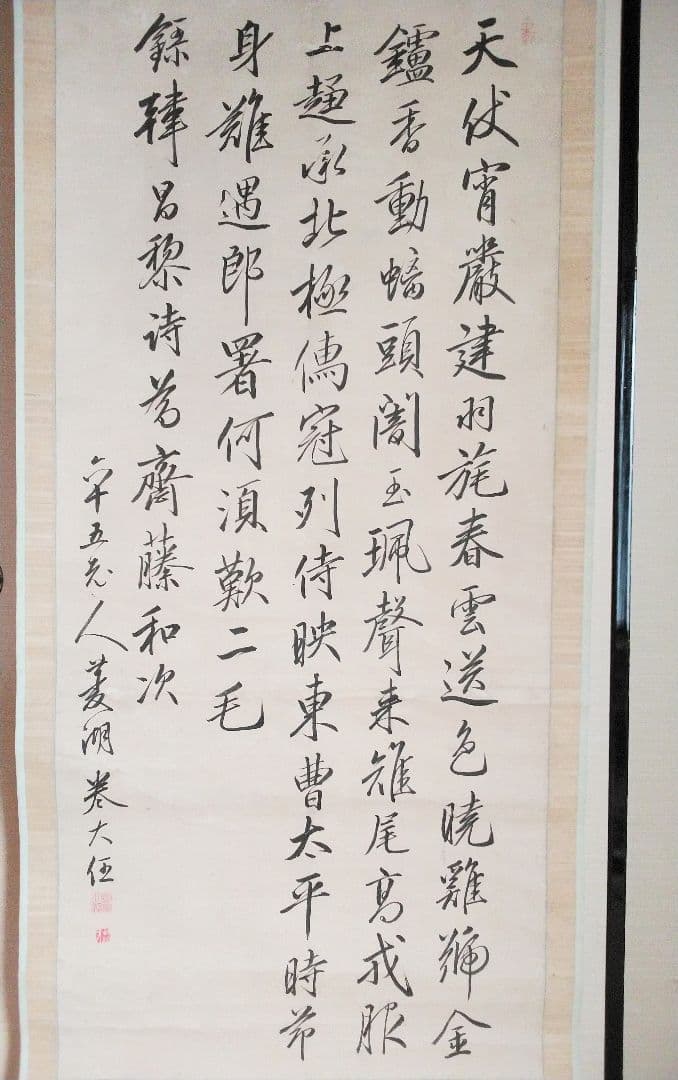 天仗宵嚴建羽旄春雲送色曉雞號金
鑪香動螭頭闇玉珮聲来雉尾髙戎服
上趨承北極儒冠列侍映東曹太平時節
身難遇郎署何須歎二毛
錄韓昌黎詩為齋藤和次
六十五老人菱湖巻大任